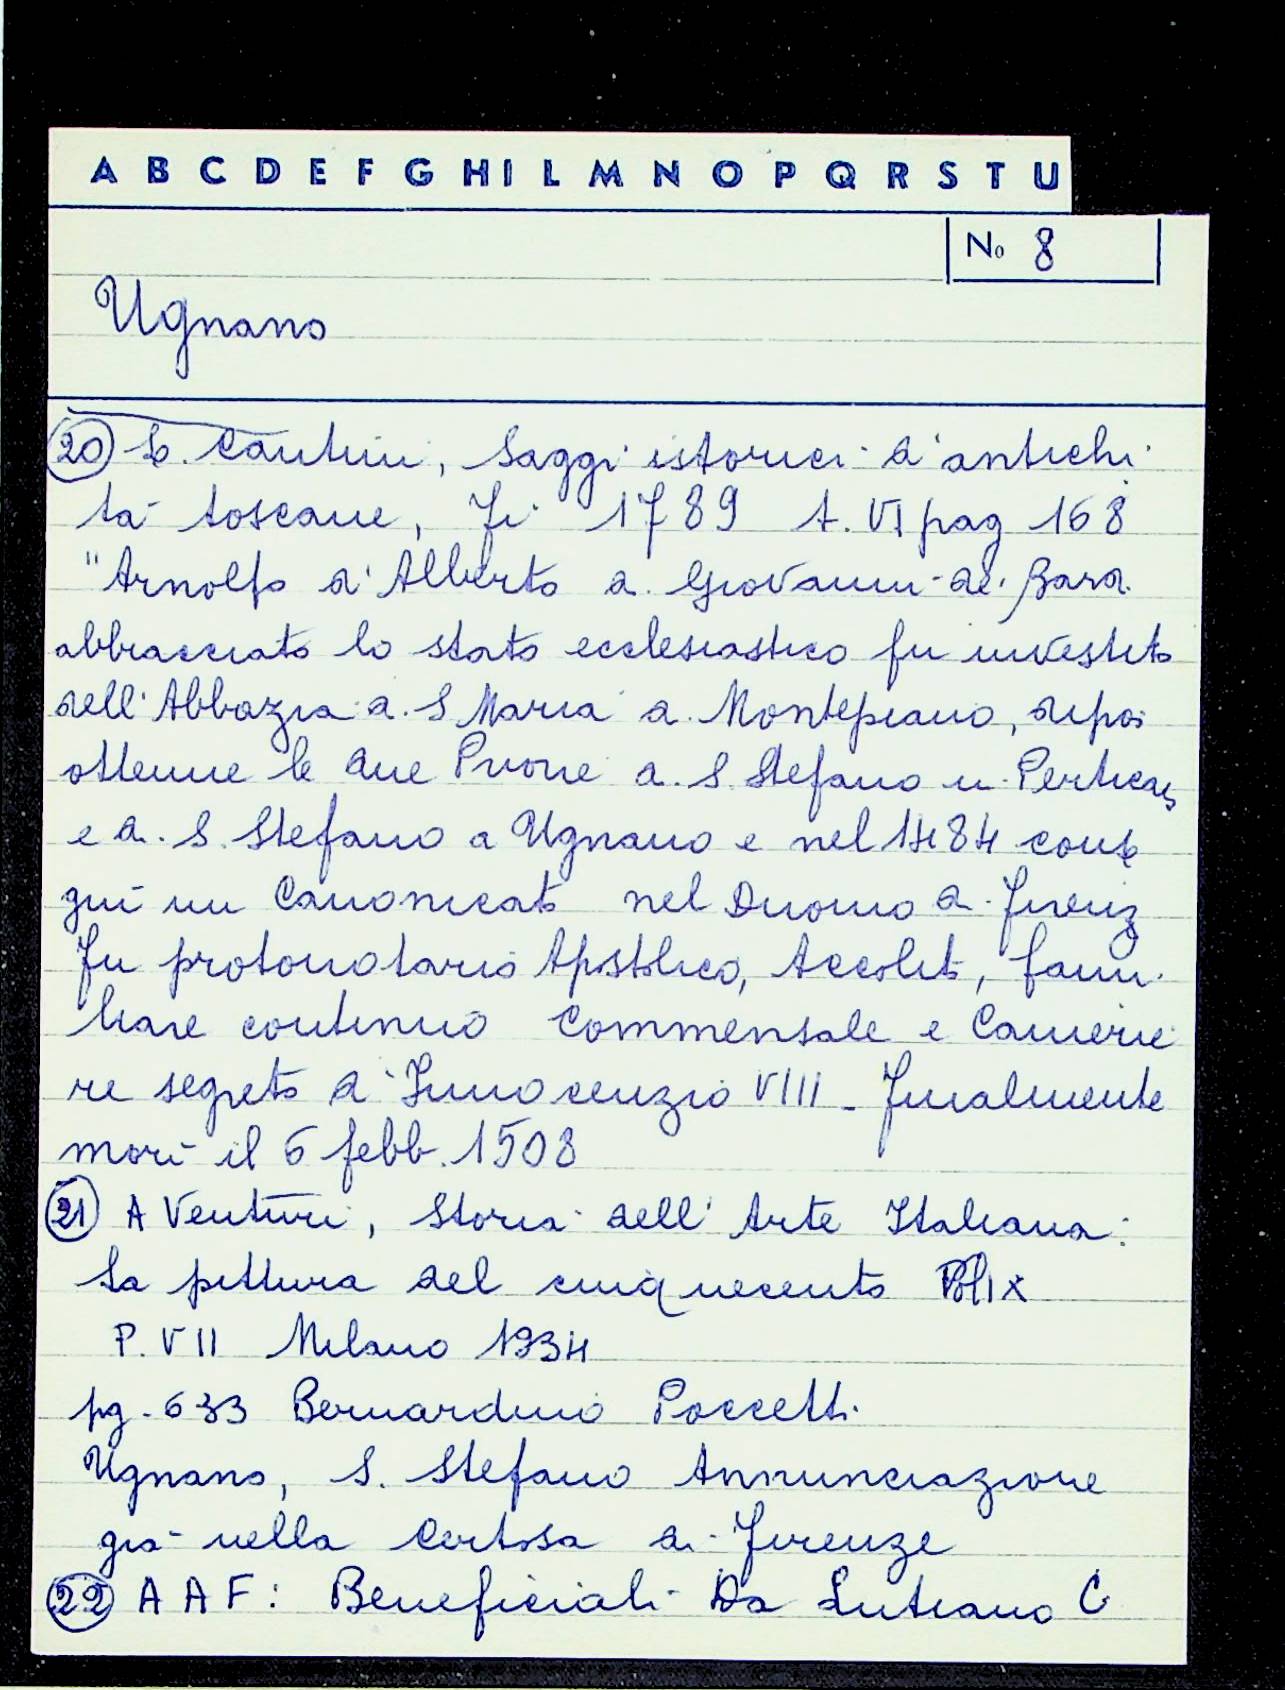 A B C D E F G H I L M N O P Q R S T U
No 8
Ugnano
20 L. Cantini, Saggi istorici d'antichi
tà toscane, Fi 1789 t. VI pag 168
"Arnolfo d'Alberto di Giovanni de' Bardi
abbracciato lo stato ecclesiastico fu investito
dell'Abbazia di S Maria a Montepiano, dipoi
ottenne le due Priorie di S. Stefano in Pertica,
e di S. Stefano a Ugnano e nel 1484 conse
guì un Canonicato nel Duomo di Firenz
Fu protonotario Apostolico, Accolito, fami
liare continuo Commensale e Camerie
re segreto d'Innocenzio VIII - Finalmente
morì il 6 febb. 1508
21 A Venturi, Storia dell'Arte Italiana:
la pittura del cinquecento Vol IX
P. VII Milano 1934
pg. 633 Bernardino Poccetti
Ugnano, S. Stefano Annunciazione
già nella Certosa di Firenze
22 A A F: Beneficiali Da Lutiano C